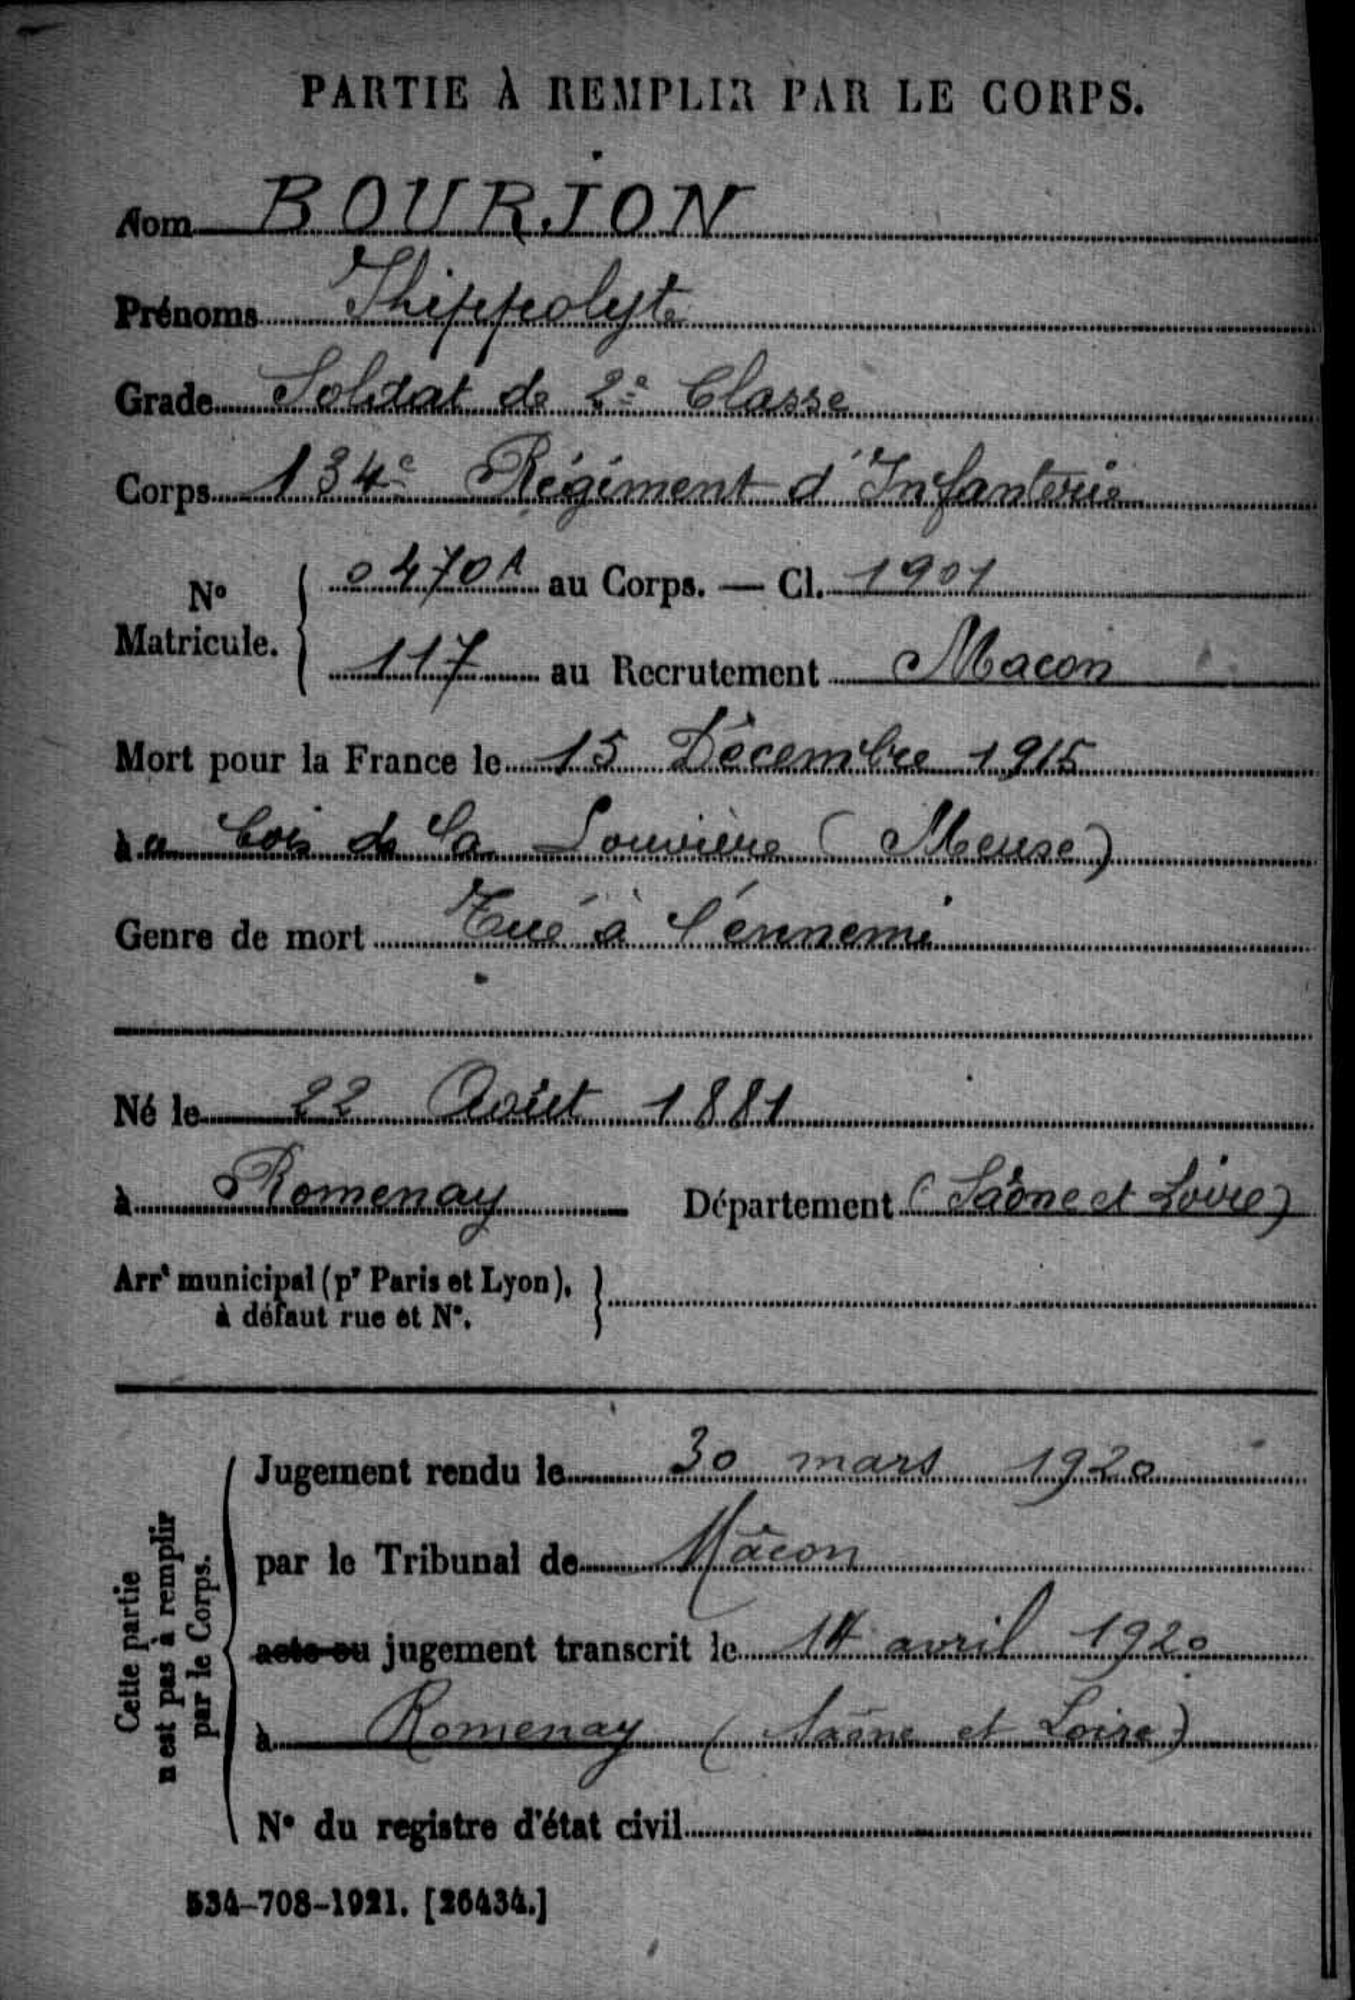 PARTIE À REMPLIR PAR LE CORPS.
Nom BOURJON
Prénoms Thippolyte
Grade Soldat de 2e Classe
Corps 134e Régiment d'Infanterie
No Matricule. 04701 au Corps. — Cl. 1901
117 au Recrutement Macon
Mort pour la France le 15 Décembre 1915
à a bois de la Louvière (Meuse)
Genre de mort Tué à l'ennemi
Né le 22 Août 1881
à Romenay Département (Saône et Loire)
Arrt municipal (pr Paris et Lyon),
à défaut rue et No.
Cette partie
n'est pas à remplir
par le Corps.
Jugement rendu le 30 mars 1920
par le Tribunal de Mâcon
acte ou jugement transcrit le 14 avril 1920
à Romenay (Saône et Loire)
No du registre d'état civil
534-708-1921. [26434.]